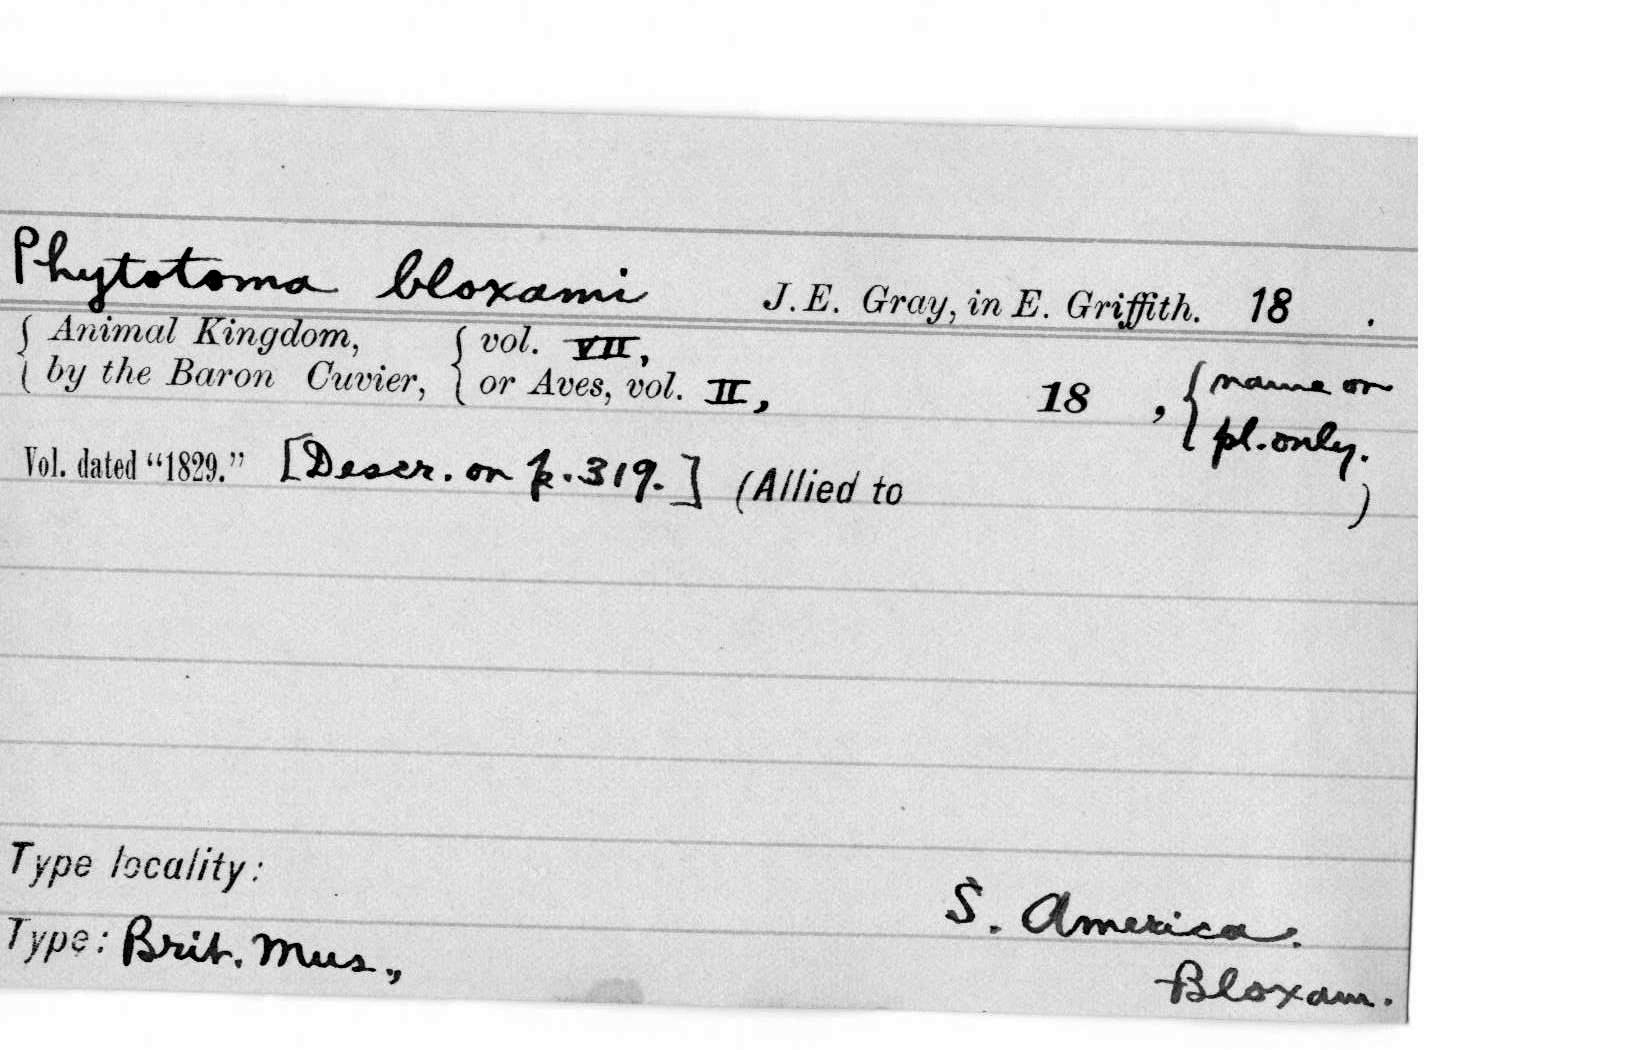 Phytotoma bloxami J.E. Gray, in E. Griffith. 18 .
{ Animal Kingdom, { vol. VII, { name on
{ by the Baron Cuvier, { or Aves, vol. II, 18 , pl. only.
Vol. dated “1829.” [Descr. on p. 319.] (Allied to )
Type locality:
S. America.
Type: Brit. Mus.,
Bloxam.